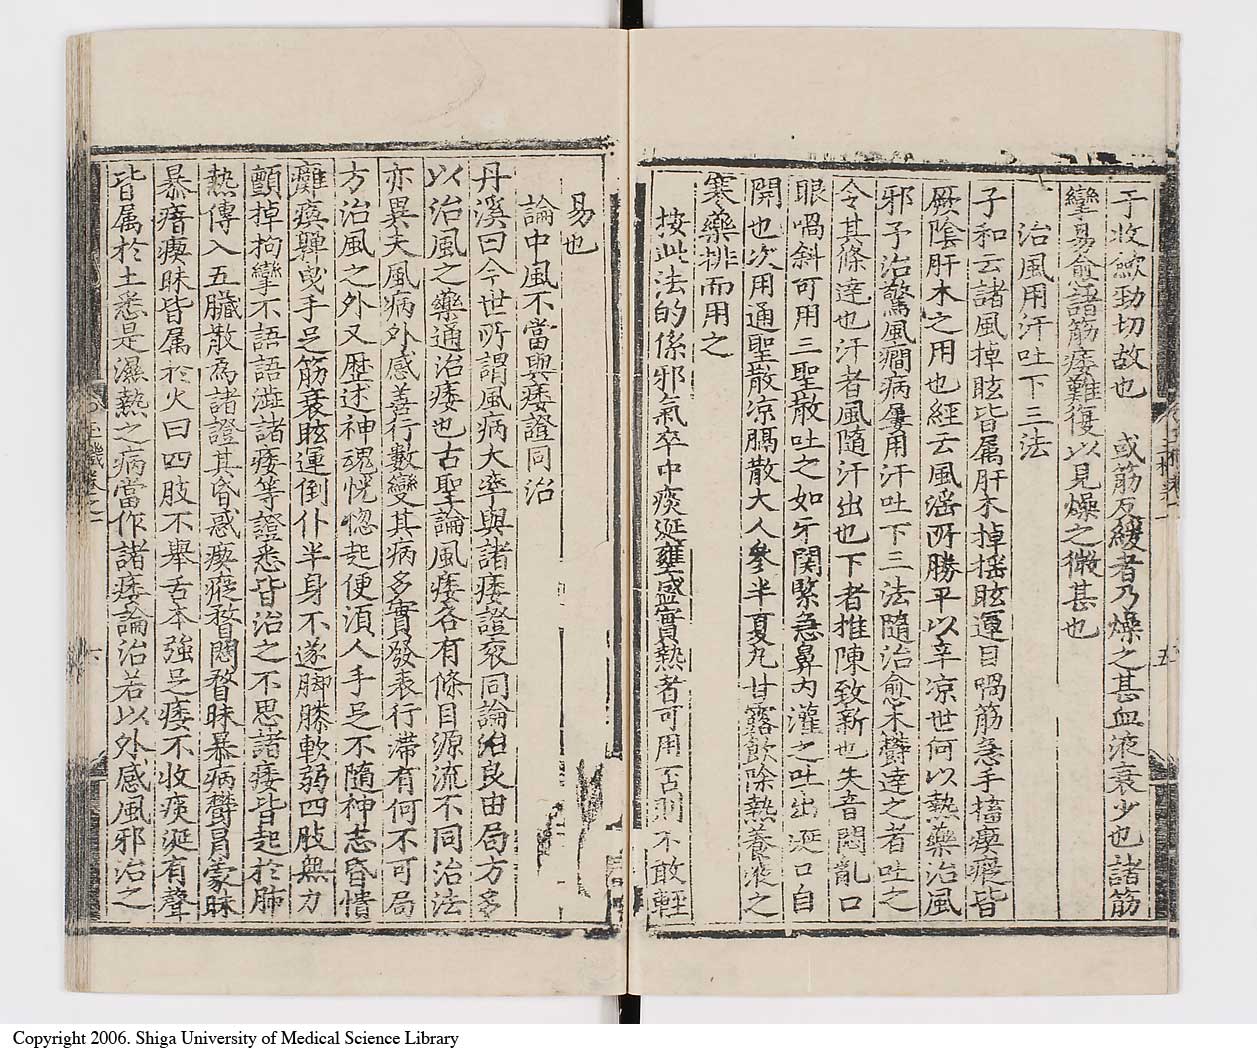 于收歛勁切故也　或筋反緩者乃燥之甚血液衰少也諸筋
攣易愈諸筋痿難復以見燥之微甚也
治風用汗吐下三法
子和云諸風掉眩皆属肝木掉揺眩運目喎筋急手搐瘈瘲皆
厥陰肝木之用也經云風滛所勝平以辛凉世何以熱藥治風
邪予治驚風癇病屢用汗吐下三法隨治愈木欝達之者吐之
令其條達也汗者風隨汗出也下者推陳致新也失音悶亂口
眼喎斜可用三聖散吐之如牙関緊急鼻内灌之吐出涎口自
開也次用通聖散凉膈散大人參半夏丸甘露飲除熱養液之
寒藥排而用之
按此法的係邪氣卒中痰涎壅盛實熱者可用否則不敢輕
易也
論中風不當與痿證同治
丹溪曰今世所謂風病大率與諸痿證衮同論治良由局方多
以治風之藥通治痿也古聖論風痿各有條目源流不同治法
亦異夫風病外感善行數變其病多實發表行滞有何不可局
方治風之外又歴述神魂恍惚起便湏人手足不隨神志昏憒
癱瘓嚲曳手足筋衰眩運倒仆半身不遂脚膝軟弱四肢無力
顫掉拘攣不語語澁諸痿等證悉皆治之不思諸痿皆起於肺
熱傳入五臓散爲諸證其昏惑瘈瘲瞀悶瞀昧暴病欝冐蒙昧
暴瘖瘈昧皆属於火曰四肢不舉舌本強足痿不收痰涎有聲
皆属於土悉是濕熱之病當作諸痿論治若以外感風邪治之
五
六
Copyright 2006. Shiga University of Medical Science Library